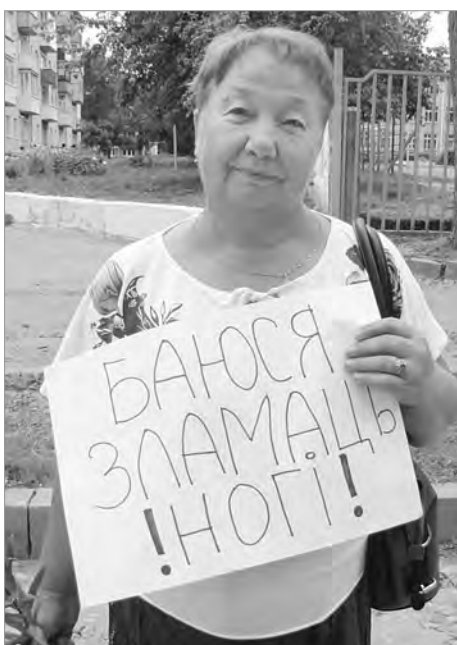 БАЮСЯ
ЗЛАМАЦЬ
!НОГІ!